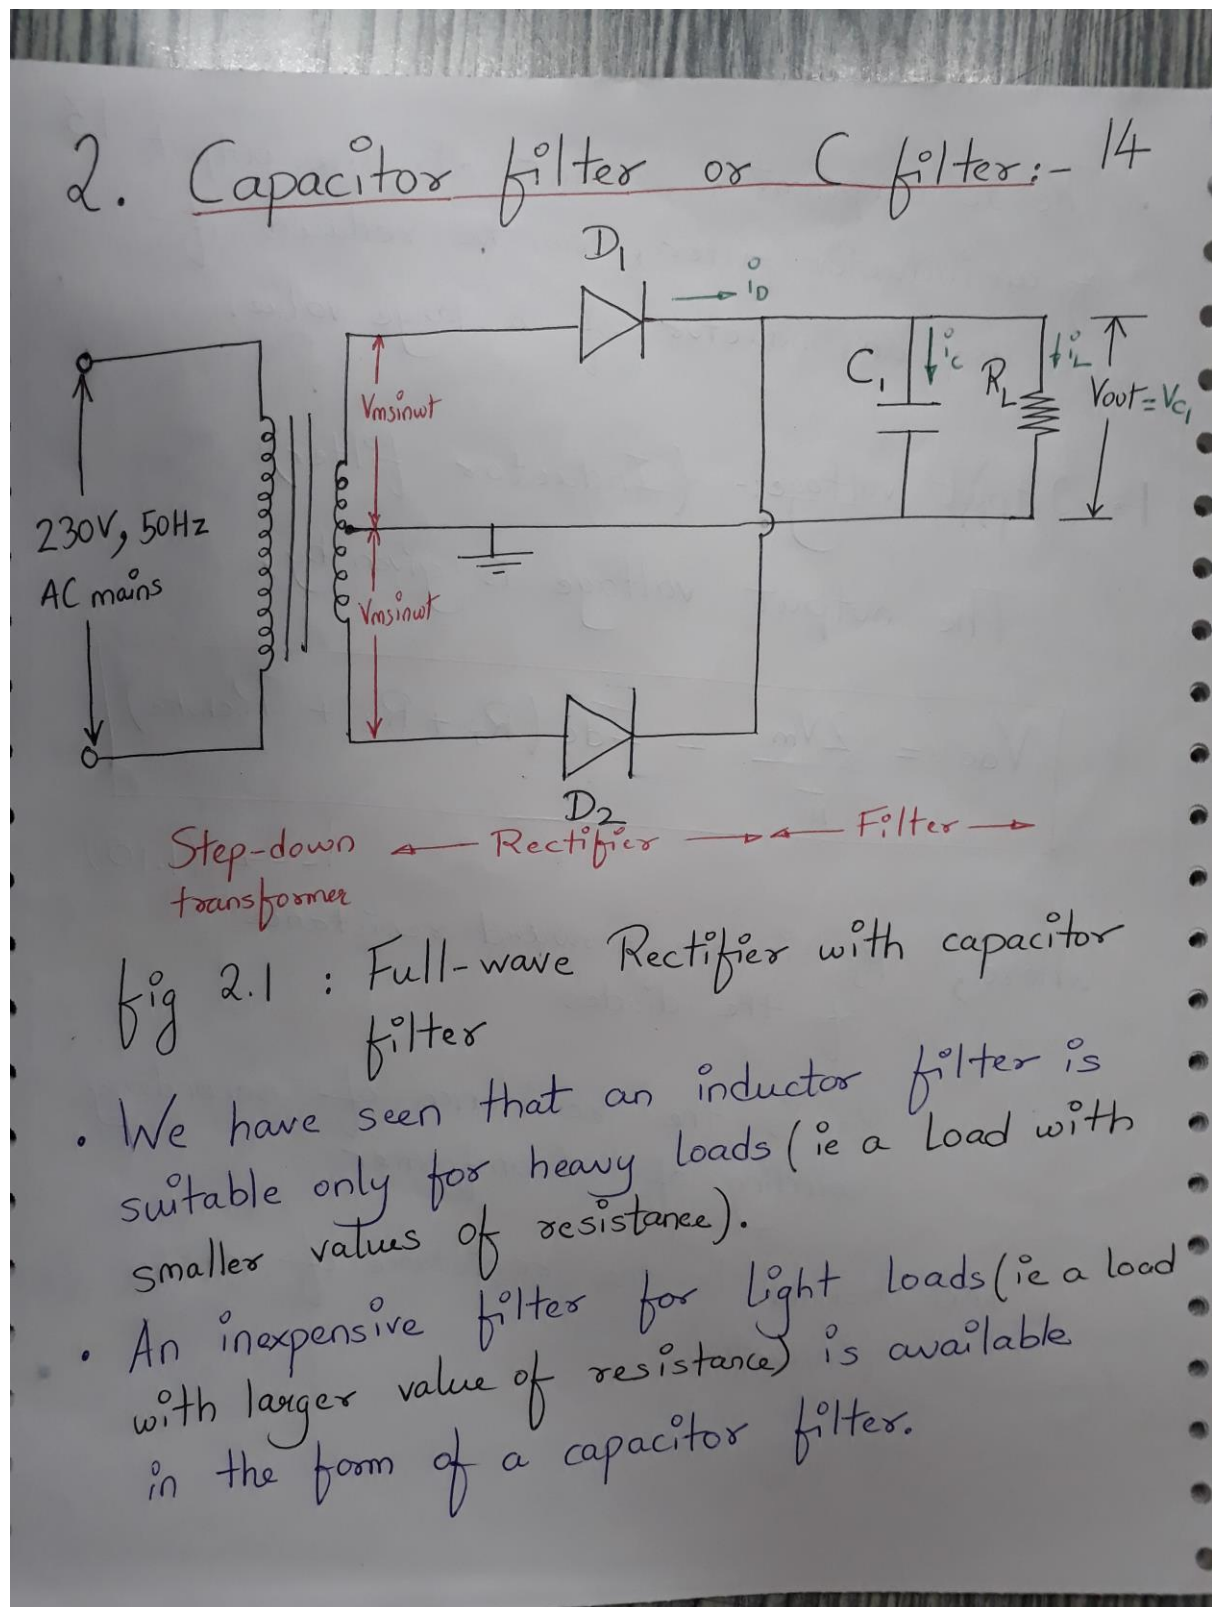 2. Capacitor filter or C filter:- 14
D1
iD
C1
iC
RL
iL
Vout = VC1
Vmsinωt
230V, 50Hz
AC mains
Vmsinωt
D2
Step-down
transformer
Rectifier
Filter
fig 2.1 : Full-wave Rectifier with capacitor
filter
• We have seen that an inductor filter is
suitable only for heavy loads (ie a Load with
smaller values of resistance).
• An inexpensive filter for Light loads (ie a load
with larger value of resistance) is available
in the form of a capacitor filter.